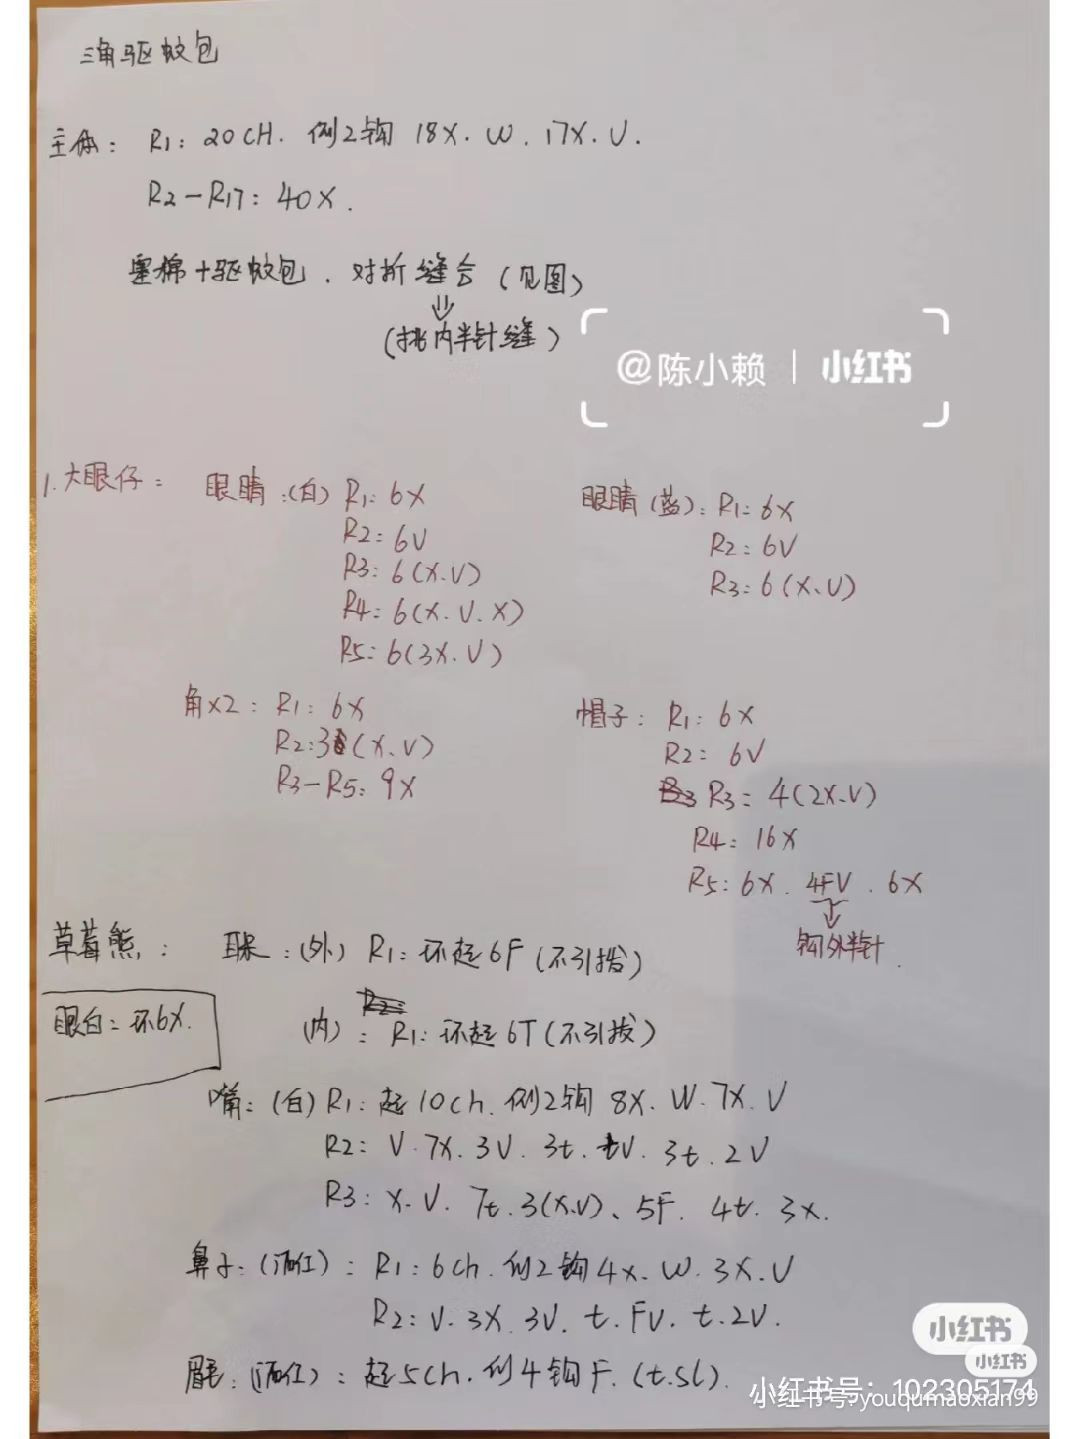 三角驱蚊包
主体: R1: 20CH. 倒2钩 18X. W. 17X. V.
R2-R17: 40X.
塞棉+驱蚊包. 对折缝合 (见图)
⇓
(挑内半针缝)
@陈小赖 | 小红书
1. 大眼仔: 眼睛:(白) R1: 6X
R2: 6V
R3: 6(X.V)
R4: 6(X.V.X)
R5: 6(3X.V)
眼睛(蓝): R1: 6X
R2: 6V
R3: 6(X、V)
角X2: R1: 6X
R2: 3(X、V)
R3-R5: 9X
帽子: R1: 6X
R2: 6V
R3: 4(2X.V)
R4: 16X
R5: 6X. 4FV. 6X
↓
钩外半针.
草莓熊: 耳朵:(外) R1: 环起6F(不引拔)
眼白: 环6X.
(内): R1: 环起6T(不引拔)
嘴:(白) R1: 起10ch. 倒2钩 8X. W. 7X. V
R2: V. 7X. 3V. 3t. tV. 3t. 2V
R3: X. V. 7t. 3(X.V)、5F. 4t. 3X.
鼻子:(酒红): R1: 6ch. 倒2钩4X. W. 3X. V
R2: V. 3X. 3V. t. FV. t. 2V.
眉毛:(酒红): 起5ch. 倒4钩F. (t.sl).
小红书
小红书
小红书号: 102305174
小红书号: youqumaoxian99